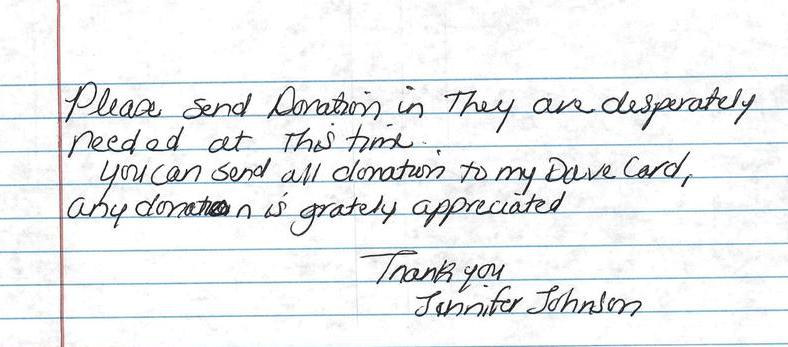 Please send Donation in They are desperately
needed at this time.
you can send all donation to my Dave Card,
any donation is grately appreciated
Thank you
Jennifer Johnson